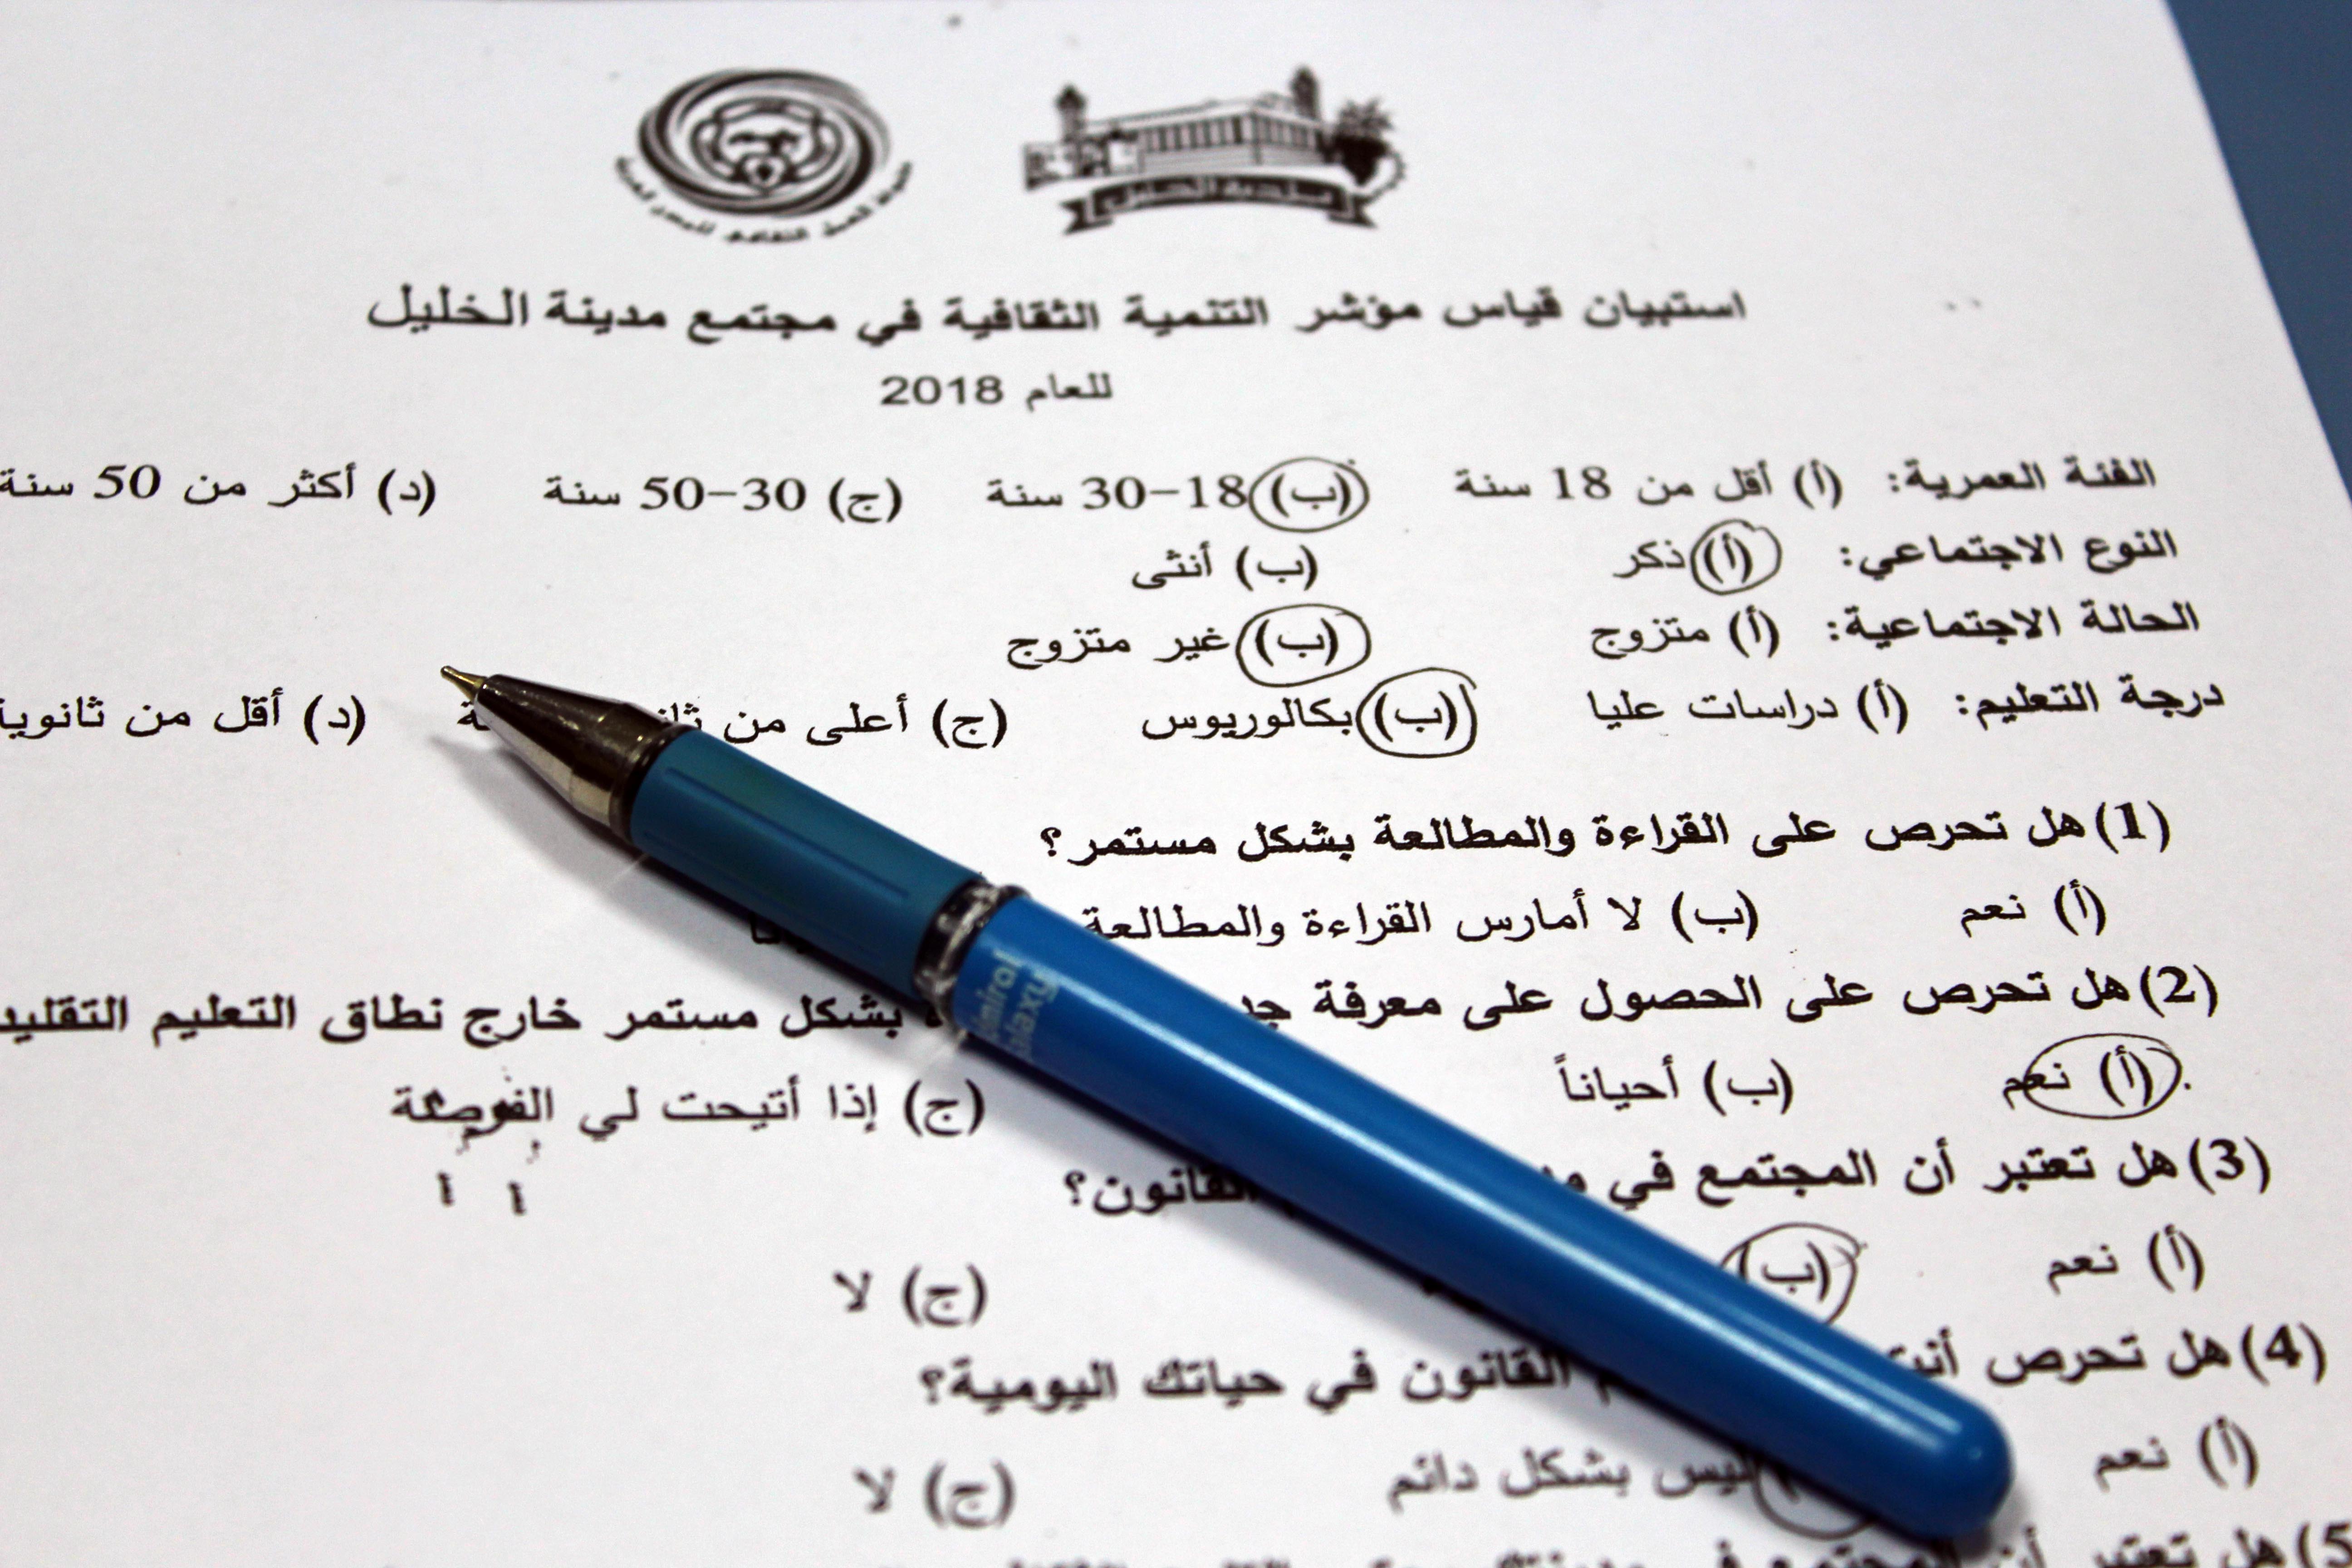 بلدية الخليل
استبيان قياس مؤشر التنمية الثقافية في مجتمع مدينة الخليل
للعام 2018
الفئة العمرية: (أ) أقل من 18 سنة (ب) 18-30 سنة (ج) 30-50 سنة (د) أكثر من 50 سنة
النوع الاجتماعي: (أ) ذكر (ب) أنثى
الحالة الاجتماعية: (أ) متزوج (ب) غير متزوج
درجة التعليم: (أ) دراسات عليا (ب) بكالوريوس (ج) أعلى من (د) أقل من ثانوية
(1) هل تحرص على القراءة والمطالعة بشكل مستمر؟
(أ) نعم (ب) لا أمارس القراءة والمطالعة
(2) هل تحرص على الحصول على معرفة بشكل مستمر خارج نطاق التعليم
(أ) نعم (ب) أحياناً (ج) إذا أتيحت لي
(3) هل تعتبر أن المجتمع في القانون؟
(أ) نعم (ب) (ج) لا
(4) هل تحرص القانون في حياتك اليومية؟
(أ) نعم ليس بشكل دائم (ج) لا
هل تعتبر أن المجتمع في